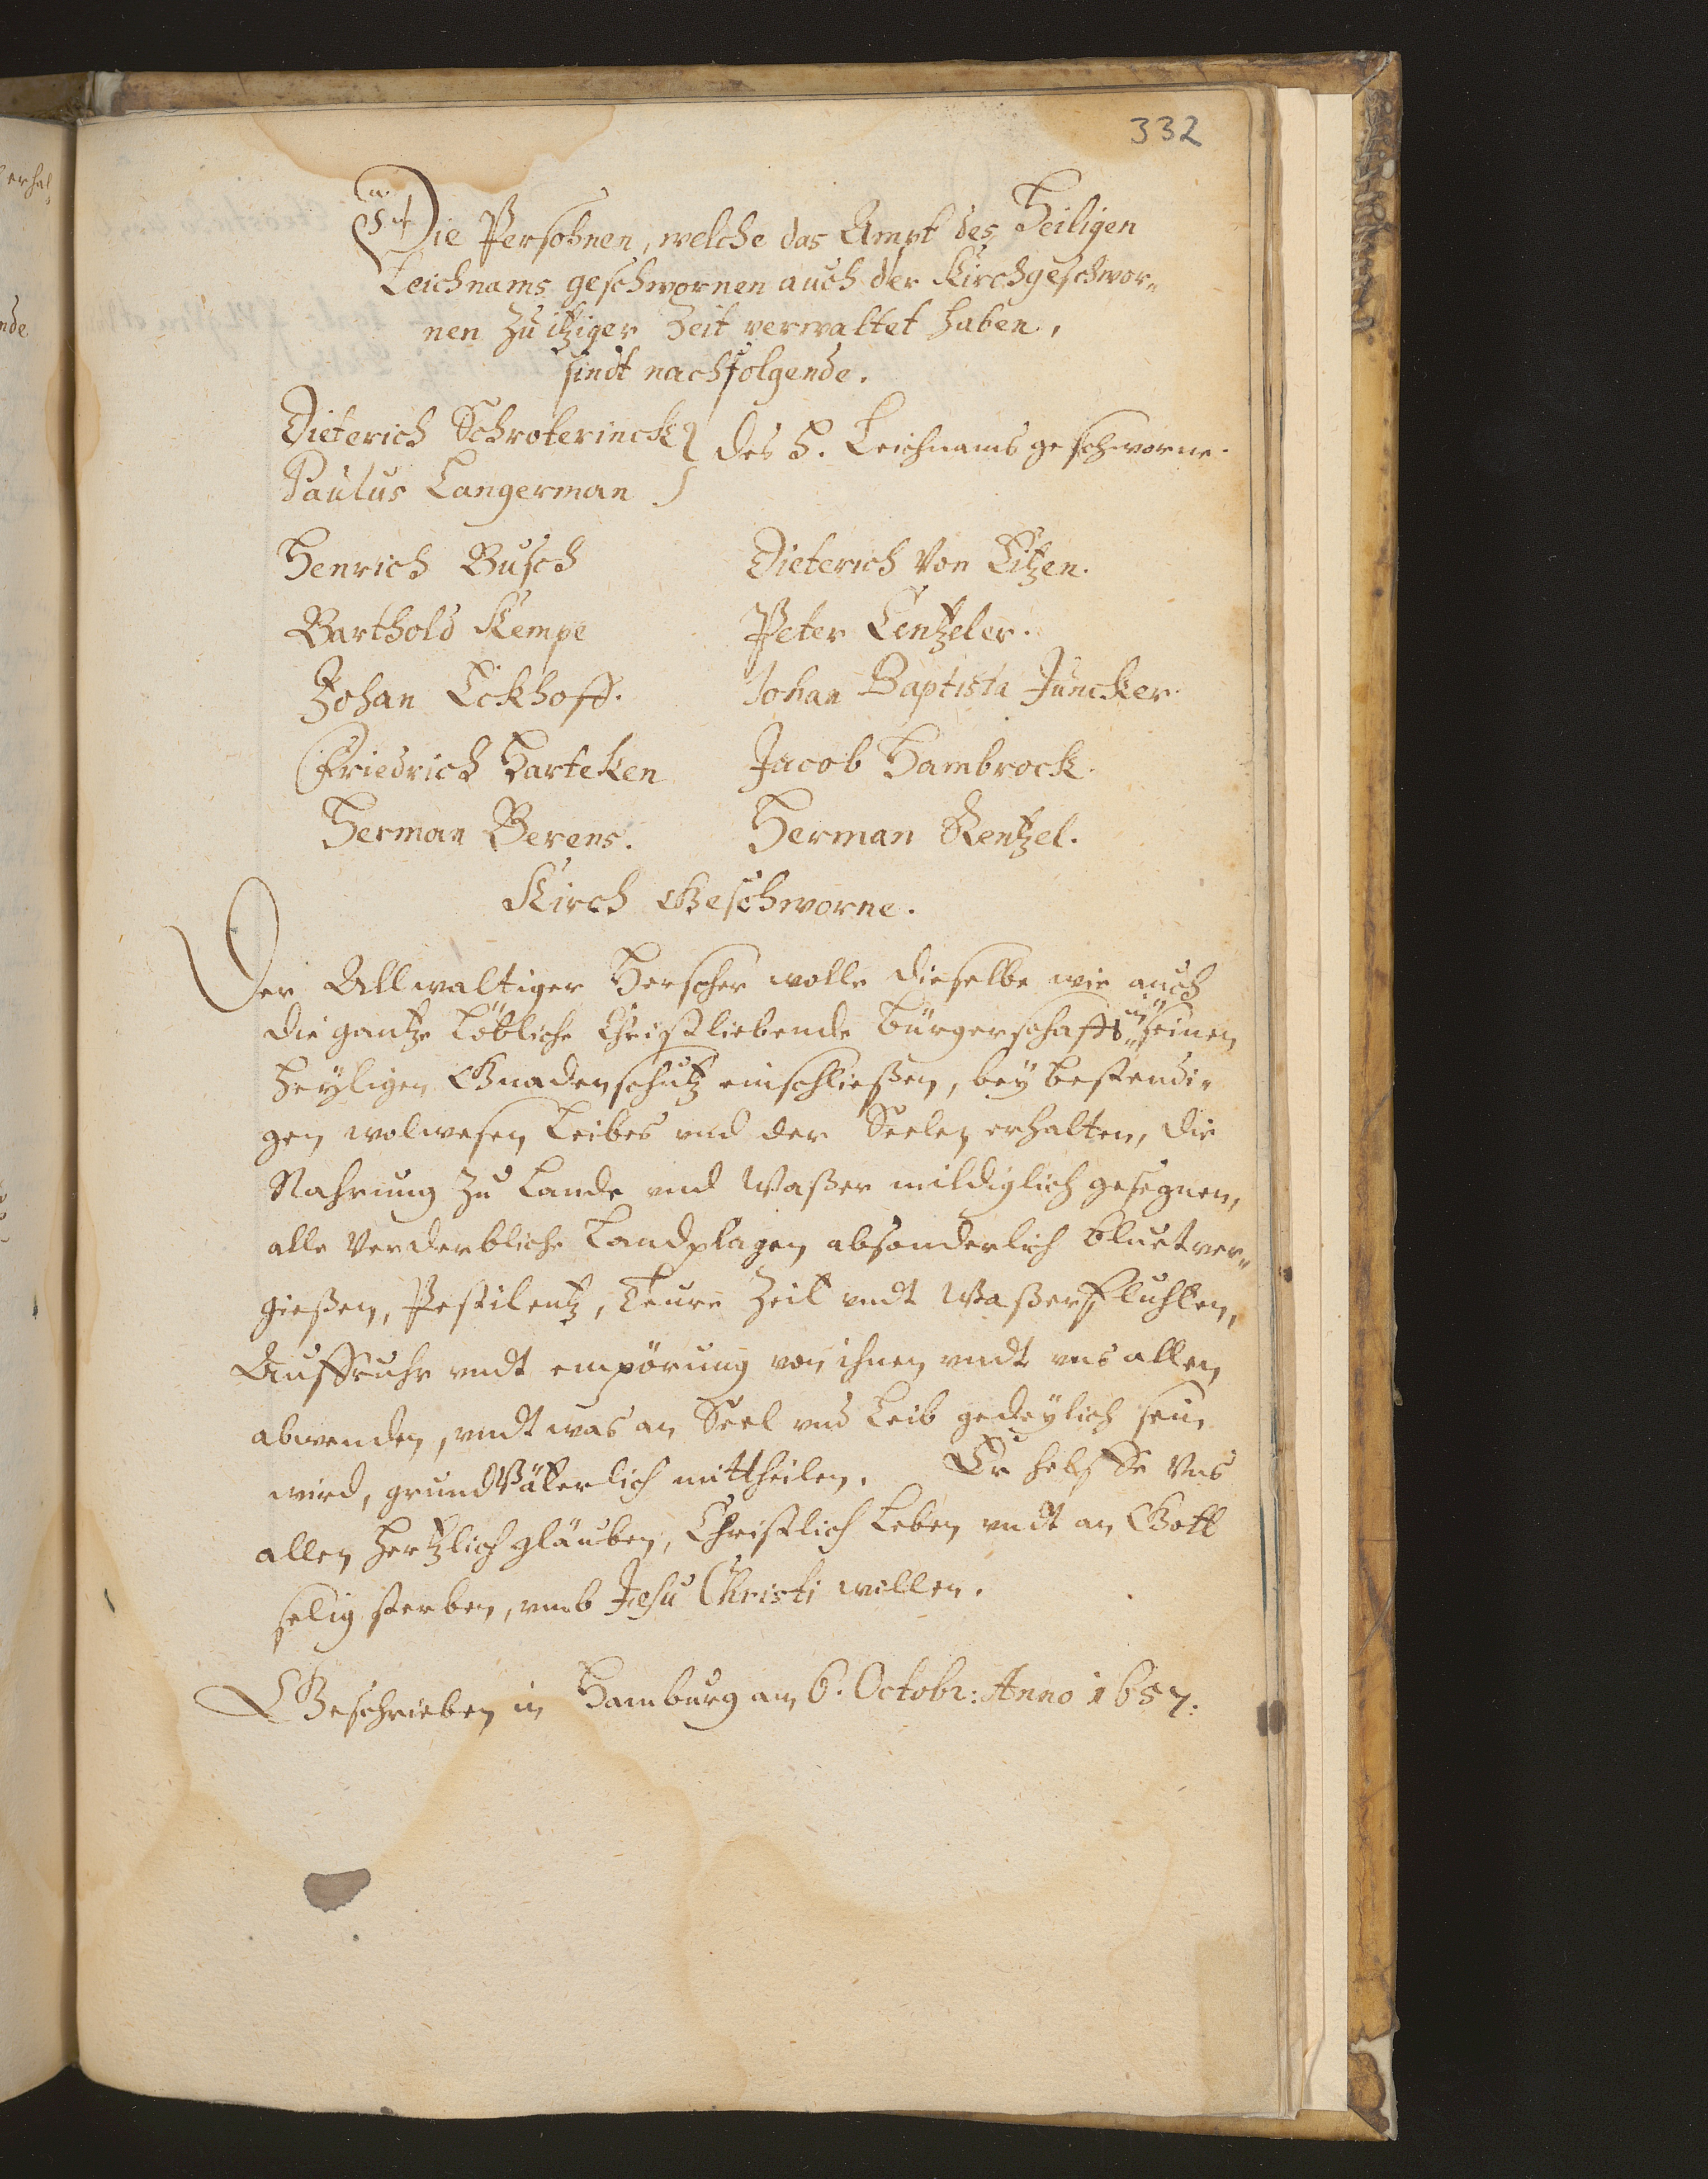 332
Die Persohnen, welche das Ampt des Heiligen
Leichnams geschwornen auch der Kirchgeschwor„
nen zu itziger Zeit verwaltet haben,
sindt nachfolgende.
Dieterich Schroterinck } des H. Leichnams geschworne.
Paulus Langerman
Henrich Busch Dieterich von Eitzen.
Barthold Kempe Peter Lentzeler.
Johan Eckhoff. Johan Baptista Juncker.
Friedrich Harteken Jacob Hambrock.
Herman Berens. Herman Rentzel.
Kirch Geschworne.
Der Allwaltiger Herscher wolle dieselbe wie auch
die gantze löbliche Christliebende Bürgerschafft in seinen
heyligen Gnadenschutz einschließen, bey bestendi„
gen wolwesen Leibes und der Seelen erhalten, die
Nahrung zu Lande und Waßer mildiglich gesegnen,
alle verderbliche Landplagen absonderlich bluetver„
gießen, Pestilentz, Teure Zeit undt Waßerfluhten,
Auffruhr undt empörung von ihnen undt uns allen
abwenden, undt was an Seel und Leib gedeylich sein
wird, grundVäterlich mittheilen. Er helffe Uns
allen hertzlich gläuben, Christlich Leben undt an Gott
selig sterben, umb Jesu Christi willen.
Geschrieben in Hamburg am 6. Octobr: Anno 1657.